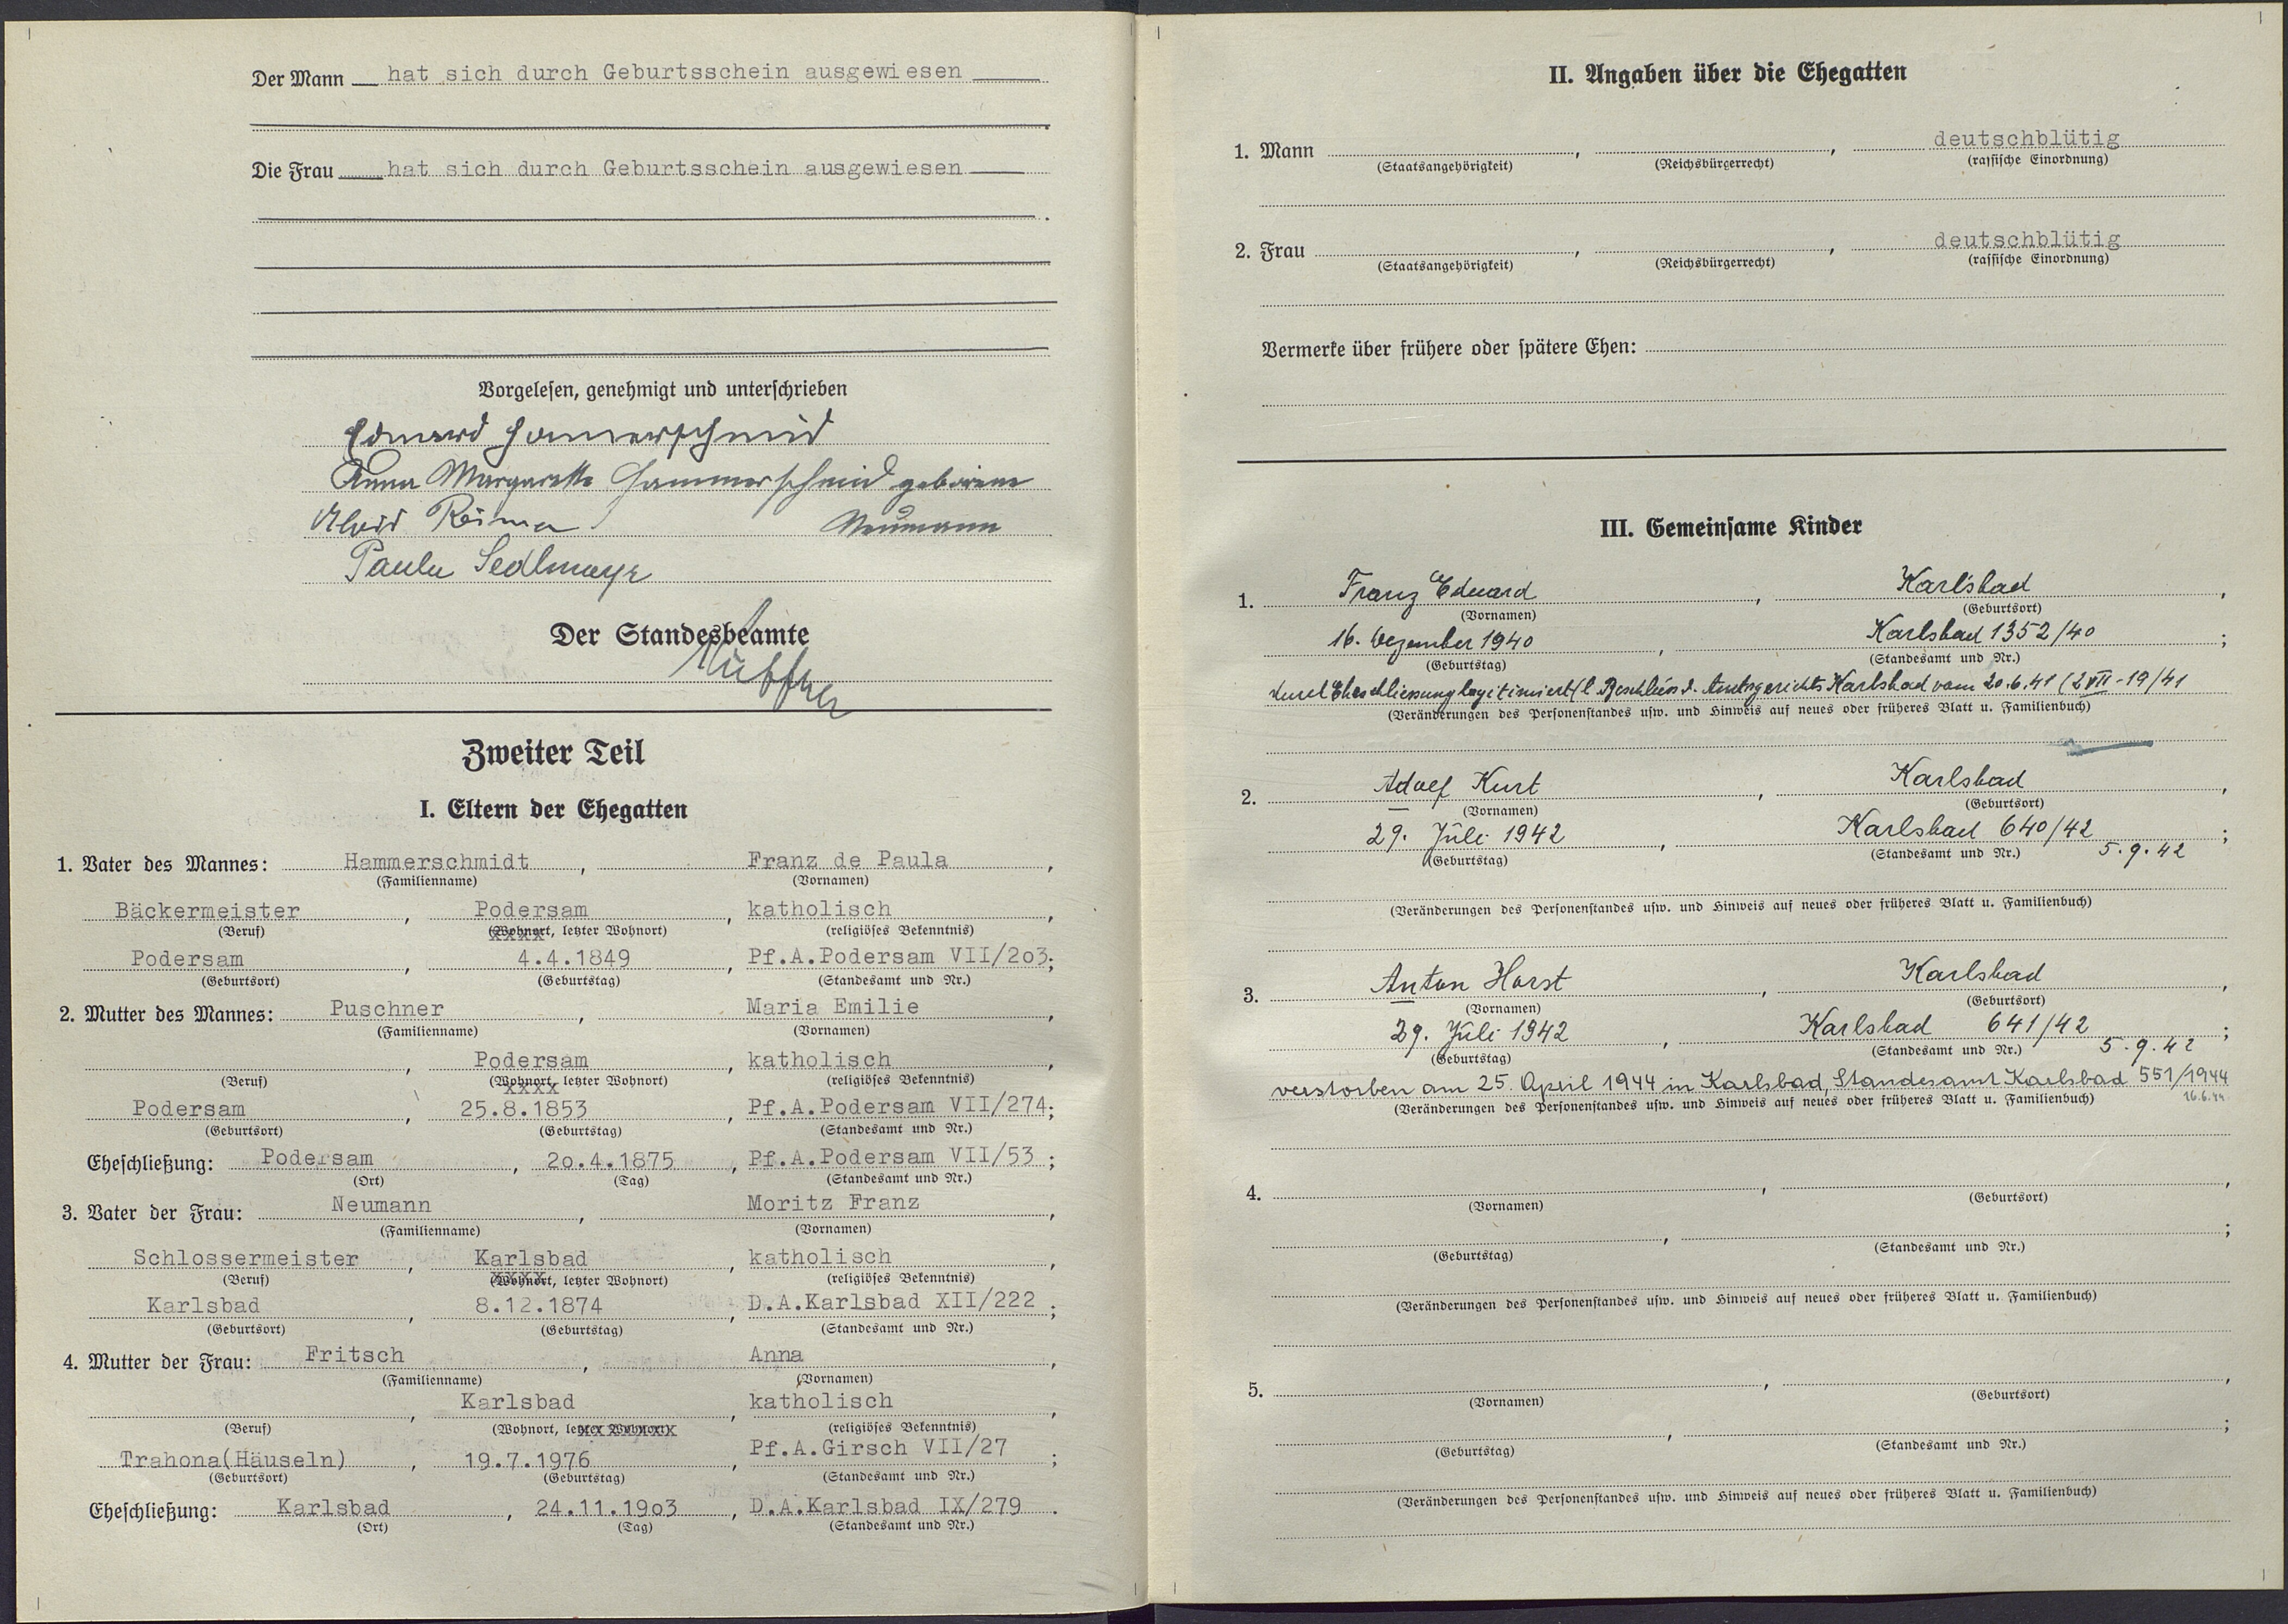 Der Mann hat sich durch Geburtsschein ausgewiesen
Die Frau hat sich durch Geburtsschein ausgewiesen
Vorgelesen, genehmigt und unterschrieben
Eduard Hammerschmid
Anna Margarethe Hammerschmid geborene
Alois
Neumann
Paula Sedlmayr
Der Standesbeamte
Zweiter Teil
I. Eltern der Ehegatten
1. Vater des Mannes: Hammerschmidt, Franz de Paula,
(Familienname) (Vornamen)
Bäckermeister, Podersam, katholisch,
(Beruf) (Wohnort, letzter Wohnort) (religiöses Bekenntnis)
Podersam, 4.4.1849, Pf.A.Podersam VII/2o3;
(Geburtsort) (Geburtstag) (Standesamt und Nr.)
2. Mutter des Mannes: Puschner, Maria Emilie,
(Familienname) (Vornamen)
, Podersam, katholisch,
(Beruf) (Wohnort, letzter Wohnort) (religiöses Bekenntnis)
Podersam, 25.8.1853, Pf.A.Podersam VII/274;
(Geburtsort) (Geburtstag) (Standesamt und Nr.)
Eheschließung: Podersam, 2o.4.1875, Pf.A.Podersam VII/53;
(Ort) (Tag) (Standesamt und Nr.)
3. Vater der Frau: Neumann, Moritz Franz,
(Familienname) (Vornamen)
Schlossermeister, Karlsbad, katholisch,
(Beruf) (Wohnort, letzter Wohnort) (religiöses Bekenntnis)
Karlsbad, 8.12.1874, D.A.Karlsbad XII/222;
(Geburtsort) (Geburtstag) (Standesamt und Nr.)
4. Mutter der Frau: Fritsch, Anna,
(Familienname) (Vornamen)
, Karlsbad, katholisch,
(Beruf) (Wohnort, letzter Wohnort) (religiöses Bekenntnis)
Trahona(Häuseln), 19.7.1976, Pf.A.Girsch VII/27;
(Geburtsort) (Geburtstag) (Standesamt und Nr.)
Eheschließung: Karlsbad, 24.11.19o3, D.A.Karlsbad IX/279.
(Ort) (Tag) (Standesamt und Nr.)
II. Angaben über die Ehegatten
1. Mann , , deutschblütig
(Staatsangehörigkeit) (Reichsbürgerrecht) (rassische Einordnung)
2. Frau , , deutschblütig
(Staatsangehörigkeit) (Reichsbürgerrecht) (rassische Einordnung)
Vermerke über frühere oder spätere Ehen:
III. Gemeinsame Kinder
1. Franz Eduard, Karlsbad,
(Vornamen) (Geburtsort)
16. Dezember 1940, Karlsbad 1352/40;
(Geburtstag) (Standesamt und Nr.)
durch Eheschliessung legitimiert (l. Beschluss d. Amtsgerichts Karlsbad vom 20.6.41 (2 VII-19/41
(Veränderungen des Personenstandes usw. und Hinweis auf neues oder früheres Blatt u. Familienbuch)
2. Adolf Kurt, Karlsbad,
(Vornamen) (Geburtsort)
29. Juli 1942, Karlsbad 640/42;
(Geburtstag) (Standesamt und Nr.) 5.9.42
(Veränderungen des Personenstandes usw. und Hinweis auf neues oder früheres Blatt u. Familienbuch)
3. Anton Horst, Karlsbad,
(Vornamen) (Geburtsort)
29. Juli 1942, Karlsbad 641/42;
(Geburtstag) (Standesamt und Nr.) 5.9.42
verstorben am 25. April 1944 in Karlsbad, Standesamt Karlsbad 551/1944
(Veränderungen des Personenstandes usw. und Hinweis auf neues oder früheres Blatt u. Familienbuch) 16.6.44
4. , ,
(Vornamen) (Geburtsort)
, ;
(Geburtstag) (Standesamt und Nr.)
(Veränderungen des Personenstandes usw. und Hinweis auf neues oder früheres Blatt u. Familienbuch)
5. , ,
(Vornamen) (Geburtsort)
, ;
(Geburtstag) (Standesamt und Nr.)
(Veränderungen des Personenstandes usw. und Hinweis auf neues oder früheres Blatt u. Familienbuch)